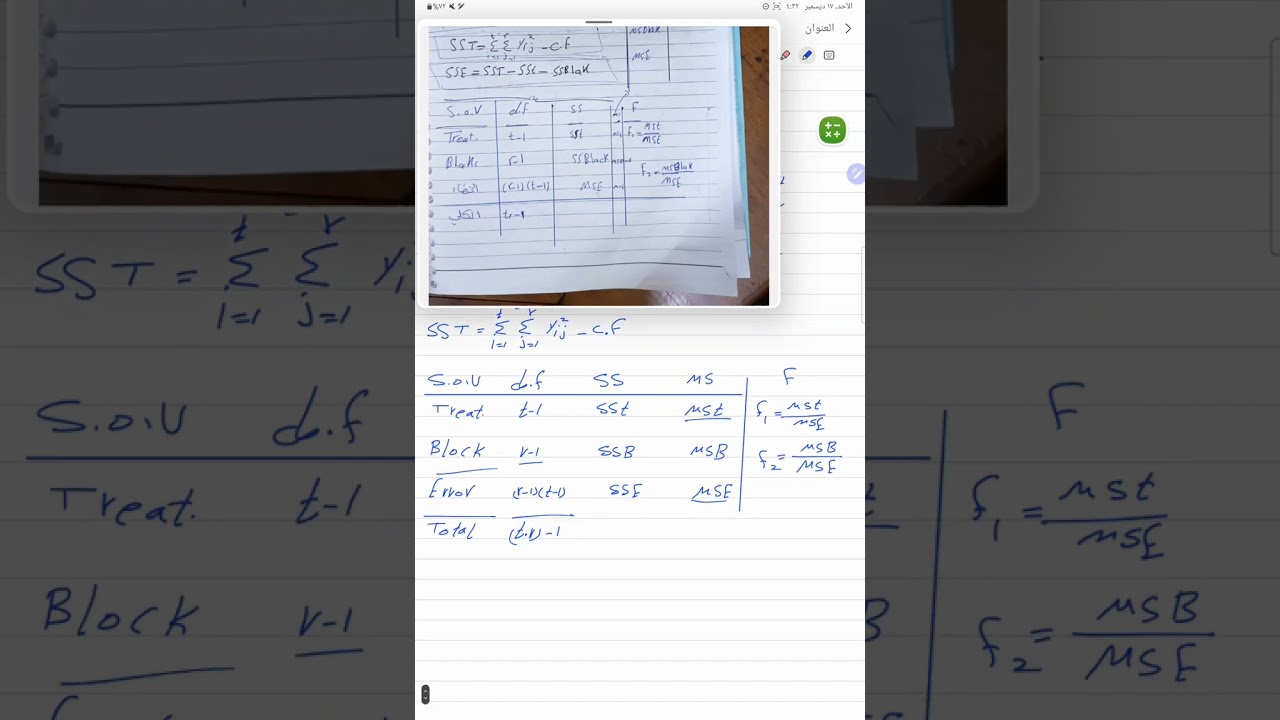 الأحد، ١٧ ديسمبر ٤:٢٢
٧٢%
العنوان
SST = Σ Σ Yij² - C.F
SSE = SST - SSt - SSBlak
MSBlak
MSE
S.o.V d.f SS F
Treat. t-1 SSt F1 = MSt / MSE
Bloks r-1 SSBlack F2 = MSBlak / MSE
(r-1)(t-1) MSE
الكلي tr-1
SST = Σ Σ Yij² - C.F
i=1 j=1
S.o.V d.f SS MS F
Treat. t-1 SSt MSt f1 = MSt / MSE
Block r-1 SSB MSB f2 = MSB / MSE
Error (r-1)(t-1) SSE MSE
Total (t.r)-1